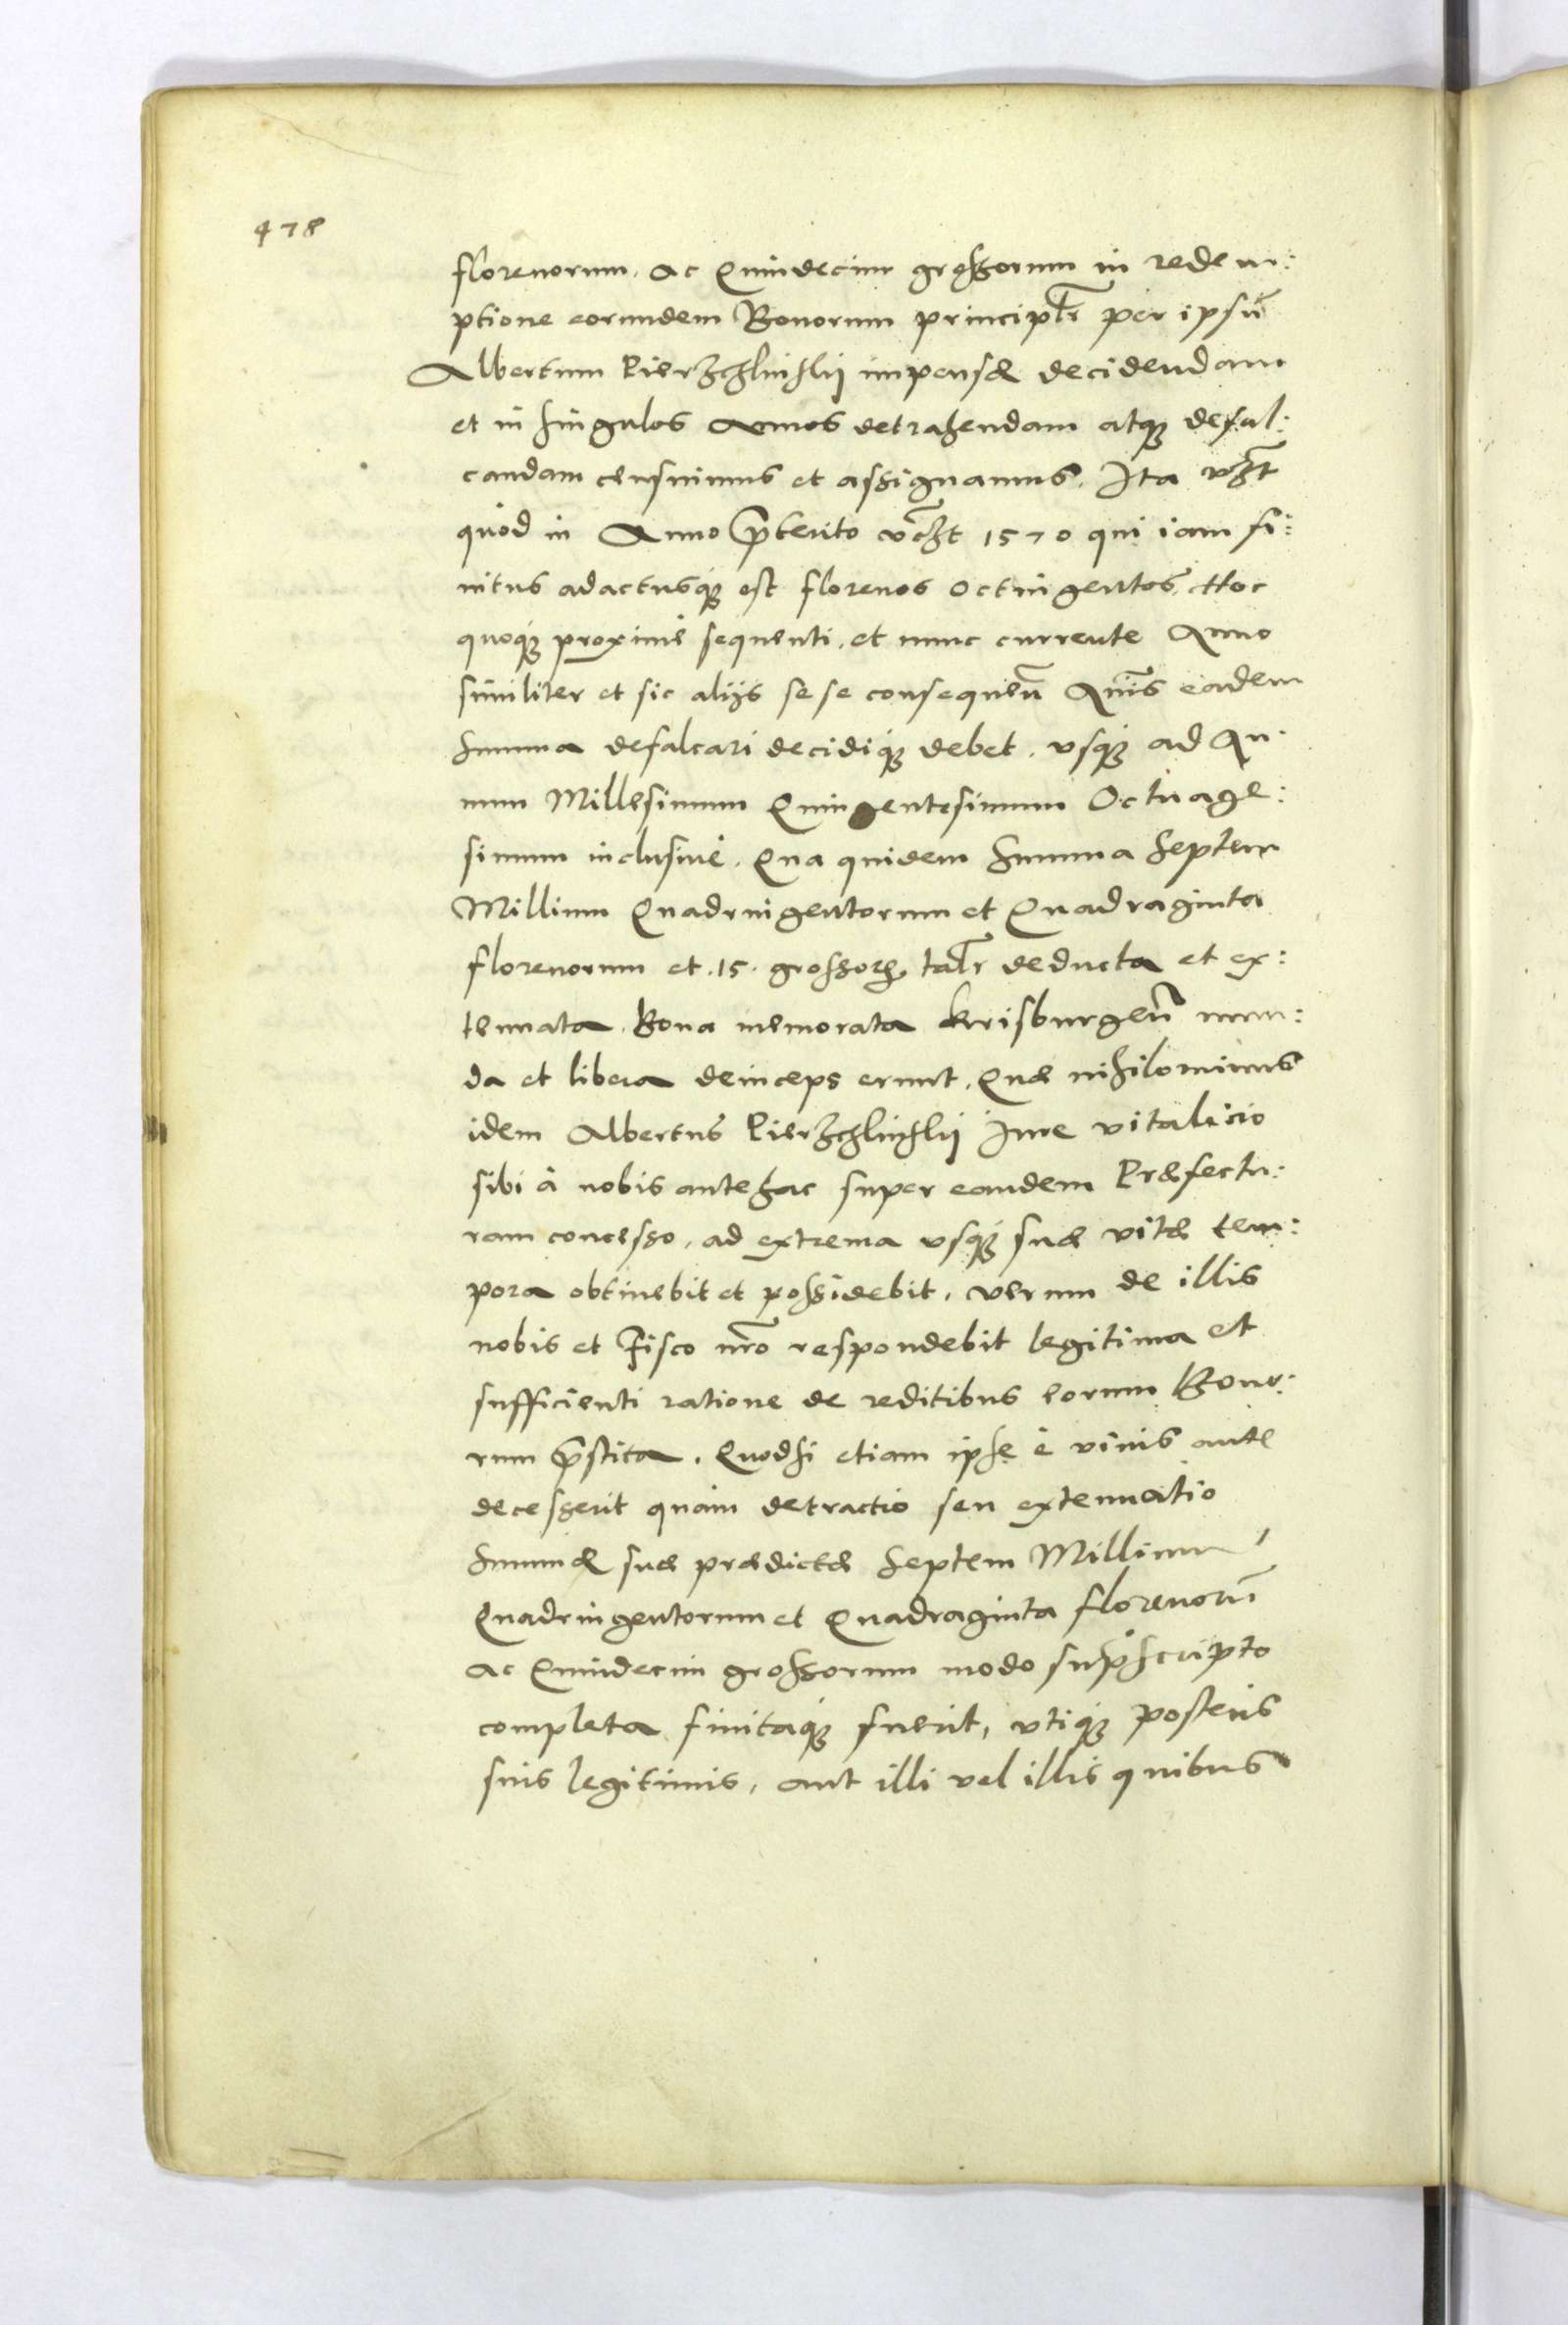 478
florenorum. ac Quindecim grossorum in redem:
ptione eorundem Bonorum principlr̃ per ipsũ
Albertum Pierzchlinſkij impensæ decidendam
et in singulos Annos detrahendam atq; defal:
candam censuimus et assignamus. Ita vz̃t
quòd in Anno p̃terito vcz̃t 1570 qui iam fi:
nitus adactusq; est florenos octingentos, Hoc
quoq; proximè sequenti. et nunc currente Anno
similiter et sic alijs sese consequeñ Añis eadem
summa defalcari decidiq; debet. vsq; ad An:
num Millesimum Quingentesimum Octuage:
simum inclusiuè. Qua quidem summa septem
Millium Quadringentorum et Quadraginta
florenorum et .15. grossorꝝ talr̃ deducta et ex:
tenuata. Bona memorata Krisburgeñ mun:
da et libera deinceps erunt. Quæ nihilominus
idem Albertus Pierzchlinſkij Iure vitalicio
sibi à nobis antehac super eandem Præfectu:
ram concesso. ad extrema vsq; suæ vitæ tem:
pora obtinebit et possidebit. verum de illis
nobis et Fisco nr̃o respondebit legitima et
sufficienti ratione de reditibus eorum Bono:
rum p̃stita. Quodsi etiam ipse è viuis ante
decesserit quàm detractio seu extenuatio
summæ suæ prædictæ septem Millium
Quadringentorum et Quadraginta florenorũ
ac Quindecim grossorum modo sup̃scripto
completa finitaq; fuerit, vtiq; posteris
suis legitimis, aut illi vel illis quibus